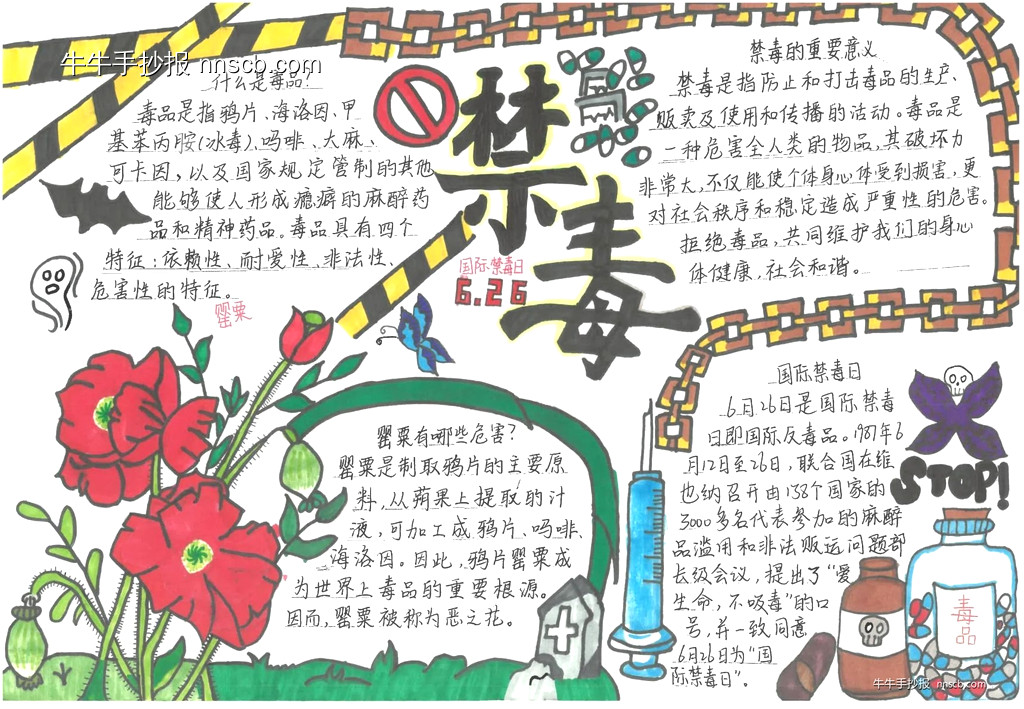 牛牛手抄报 nnscb.com
什么是毒品?
毒品是指鸦片、海洛因、甲
基苯丙胺(冰毒)、吗啡、大麻、
可卡因,以及国家规定管制的其他
能够使人形成瘾癖的麻醉药
品和精神药品。毒品具有四个
特征:依赖性、耐爱性、非法性、
危害性的特征。
罂粟
禁毒
国际禁毒日
6.26
禁毒的重要意义
禁毒是指防止和打击毒品的生产、
贩卖及使用和传播的活动。毒品是
一种危害全人类的物品,其破坏力
非常大,不仅能使个体身心体受到损害,更
对社会秩序和稳定造成严重性的危害。
拒绝毒品,共同维护我们的身心
体健康,社会和谐。
罂粟有哪些危害?
罂粟是制取鸦片的主要原
料,从蒴果上提取的汁
液,可加工成鸦片、吗啡、
海洛因。因此,鸦片罂粟成
为世界上毒品的重要根源。
因而,罂粟被称为恶之花。
国际禁毒日
6月26日是国际禁毒
日即国际反毒品。1987年6
月12日至26日,联合国在维
也纳召开由138个国家的
3000多名代表参加的麻醉
品滥用和非法贩运问题部
长级会议,提出了“爱
生命,不吸毒”的口
号,并一致同意
6月26日为“国
际禁毒日”。
STOP!
毒品
牛牛手抄报 nnscb.com